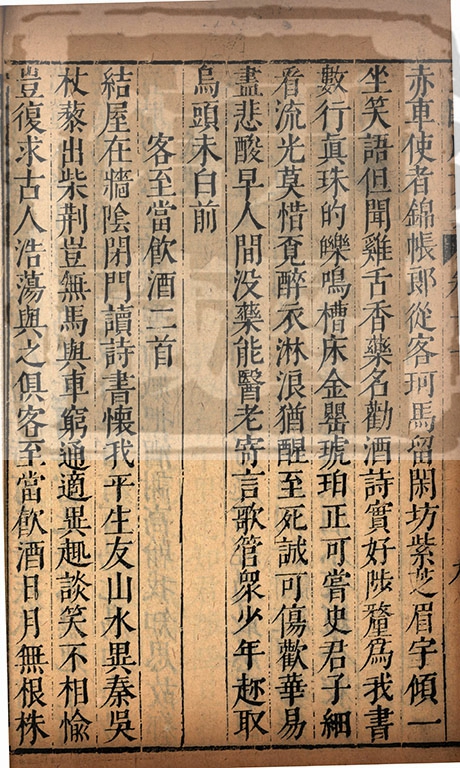 赤車使者錦帳郎從客珂馬留閑坊紫芝眉宇傾一
坐笑語但聞雞舌香藥名勸酒詩實好陟釐為我書
數行真珠的皪鳴槽床金罍琥珀正可嘗史君子細
看流光莫惜覔醉衣淋浪猶醒至死誠可傷歡華易
盡悲酸早人間没藥能醫老寄言歌管衆少年趂取
烏頭未白前
客至當飲酒二首
結屋在牆陰閉門讀詩書懷我平生友山水異秦吳
杖藜出柴荆豈無馬與車窮通適異趣談笑不相愉
豈復求古人浩蕩與之俱客至當飲酒日月無根株